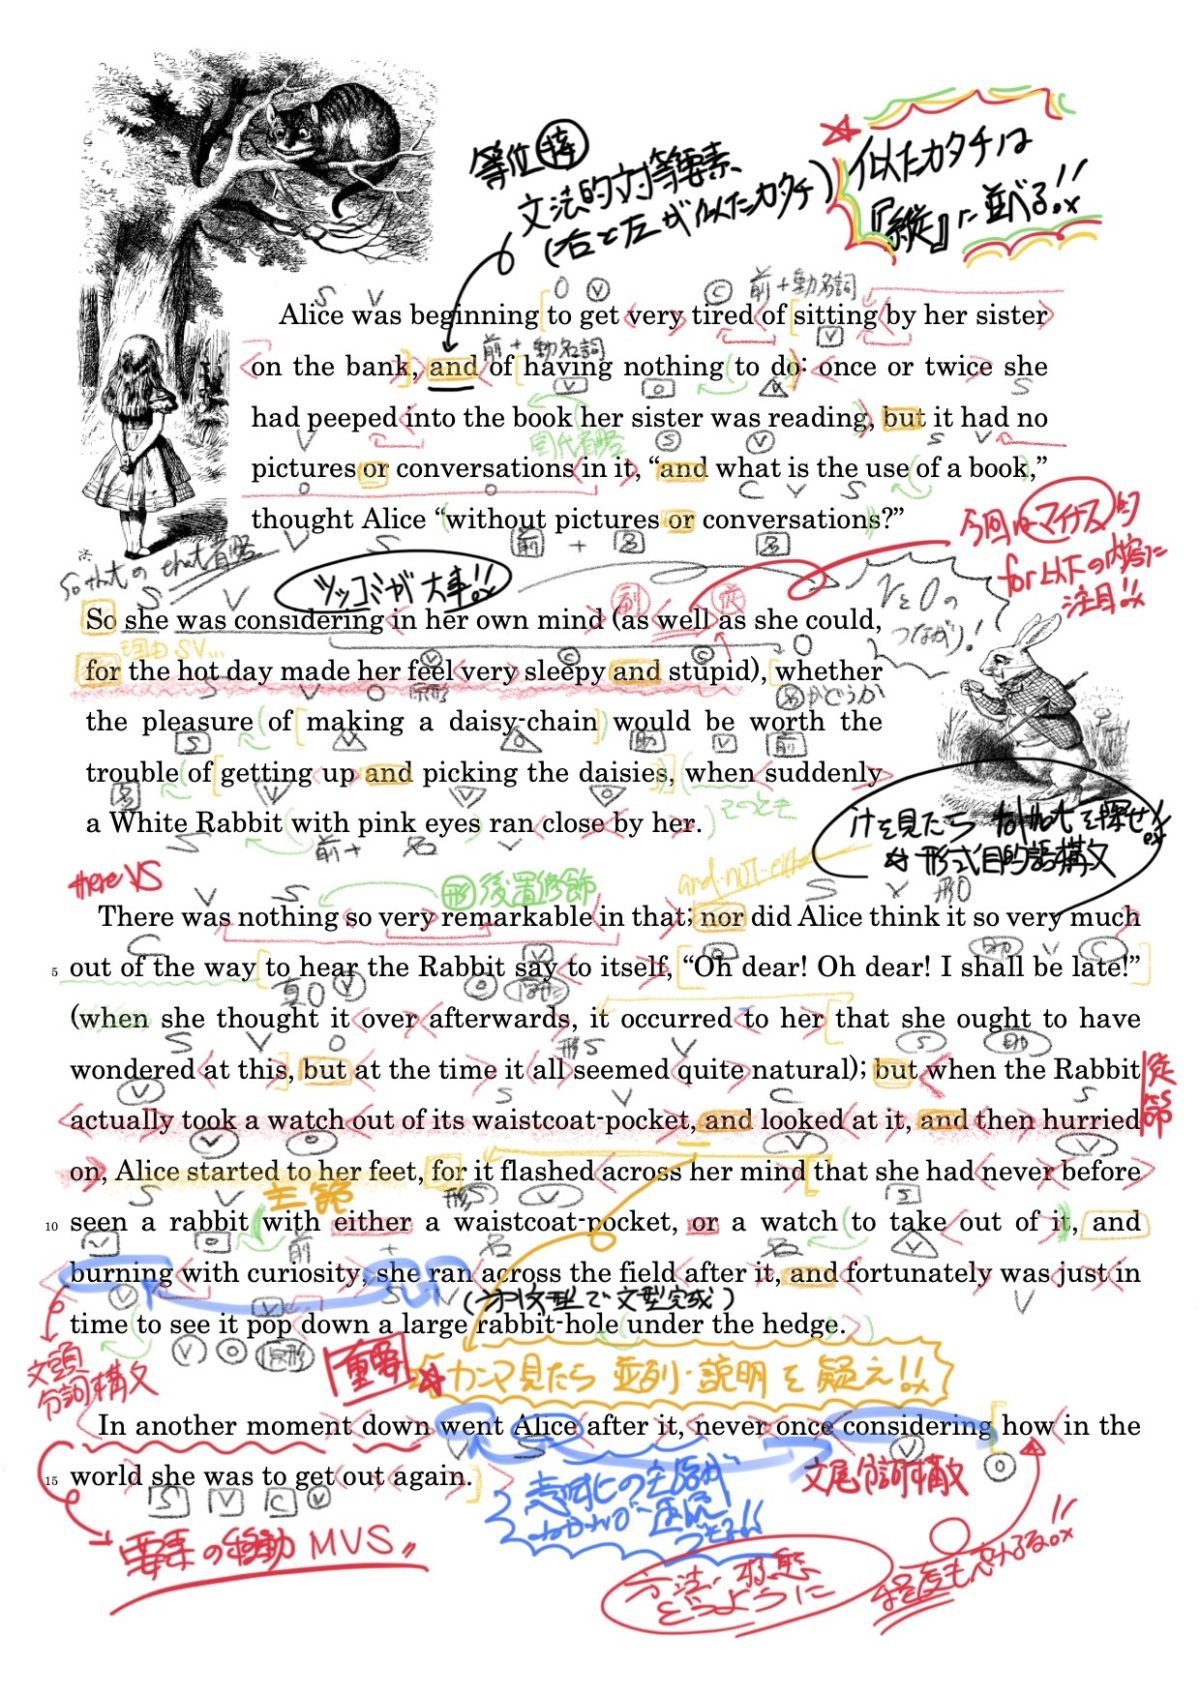 等位接
文法的対等要素
(右と左が似たカタチ)
似たカタチは
『縦』に並べる!!
S V O V C 前+動名詞
Alice was beginning to get very tired of sitting by her sister
前+動名詞 V
on the bank, and of having nothing to do: once or twice she
V O V S
had peeped into the book her sister was reading, but it had no
V 関代省略 S V S V
pictures or conversations in it, “and what is the use of a book,”
O O C V S
thought Alice “without pictures or conversations?”
V S 前 + 名 名
So thatの that省略
ツッコミが大事!!
今回はマイナス的
for以下の内容に
注目!!
VとOの
つながり!
S V 副 接
So she was considering in her own mind (as well as she could,
理由SV... V C C O
for the hot day made her feel very sleepy and stupid), whether
S V O 原形 名かどうか
the pleasure of making a daisy-chain would be worth the
S V O 助 V 前
trouble of getting up and picking the daisies, when suddenly
名 V V O
a White Rabbit with pink eyes ran close by her.
S 前+ 名 V
itを見たら to that を探せ!
形式目的語構文
there VS
V S 形 後置修飾 S V 形O
There was nothing so very remarkable in that; nor did Alice think it so very much
C V S 助 V C
5 out of the way to hear the Rabbit say to itself, “Oh dear! Oh dear! I shall be late!”
真O V O 原形
(when she thought it over afterwards, it occurred to her that she ought to have
S V O 形S V S 助
wondered at this, but at the time it all seemed quite natural); but when the Rabbit
従節
V S V C S
actually took a watch out of its waistcoat-pocket, and looked at it, and then hurried
V O V V
on, Alice started to her feet, for it flashed across her mind that she had never before
S V 主節 形S V S
10 seen a rabbit with either a waistcoat-pocket, or a watch to take out of it, and
V O 前 + 名 名 V
burning with curiosity, she ran across the field after it, and fortunately was just in
V S V V
time to see it pop down a large rabbit-hole under the hedge.
V O 原形
文頭
分詞構文
重要
カンマ見たら 並列・説明を疑え!!
In another moment down went Alice after it, never once considering how in the
V S V O
15 world she was to get out again.
S V C V
文尾分詞構文
要素の移動 MVS
方法・状態
どうように